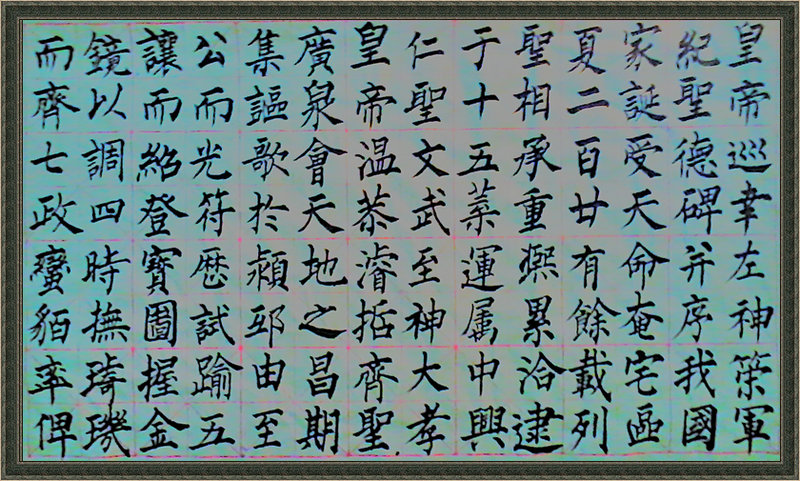 皇帝巡幸左神策軍
紀聖德碑并序我國
家誕受天命奄宅區
夏二百廿有餘載列
聖相承重熙累洽逮
于十五葉運属中興
仁聖文武至神大孝
皇帝温恭濬哲齊聖
廣泉會天地之昌期
集謳歌於潁邸由至
公而光符歷試踰五
讓而紹登寶圖握金
鏡以調四時撫璿璣
而齊七政蠻貊率俾